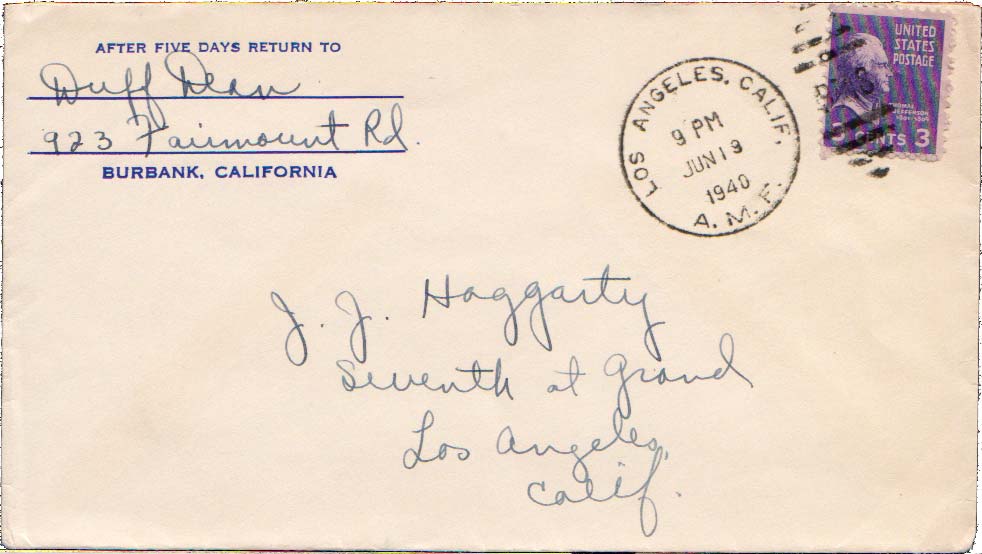 AFTER FIVE DAYS RETURN TO
Duff Dean
923 Fairmount Rd.
BURBANK, CALIFORNIA
LOS ANGELES, CALIF.
9 PM
JUN 19
1940
A.M.F.
UNITED
STATES
POSTAGE
THOMAS
JEFFERSON
1801-1809
CENTS 3
J. J. Haggarty
Seventh at Grand
Los Angeles,
Calif.